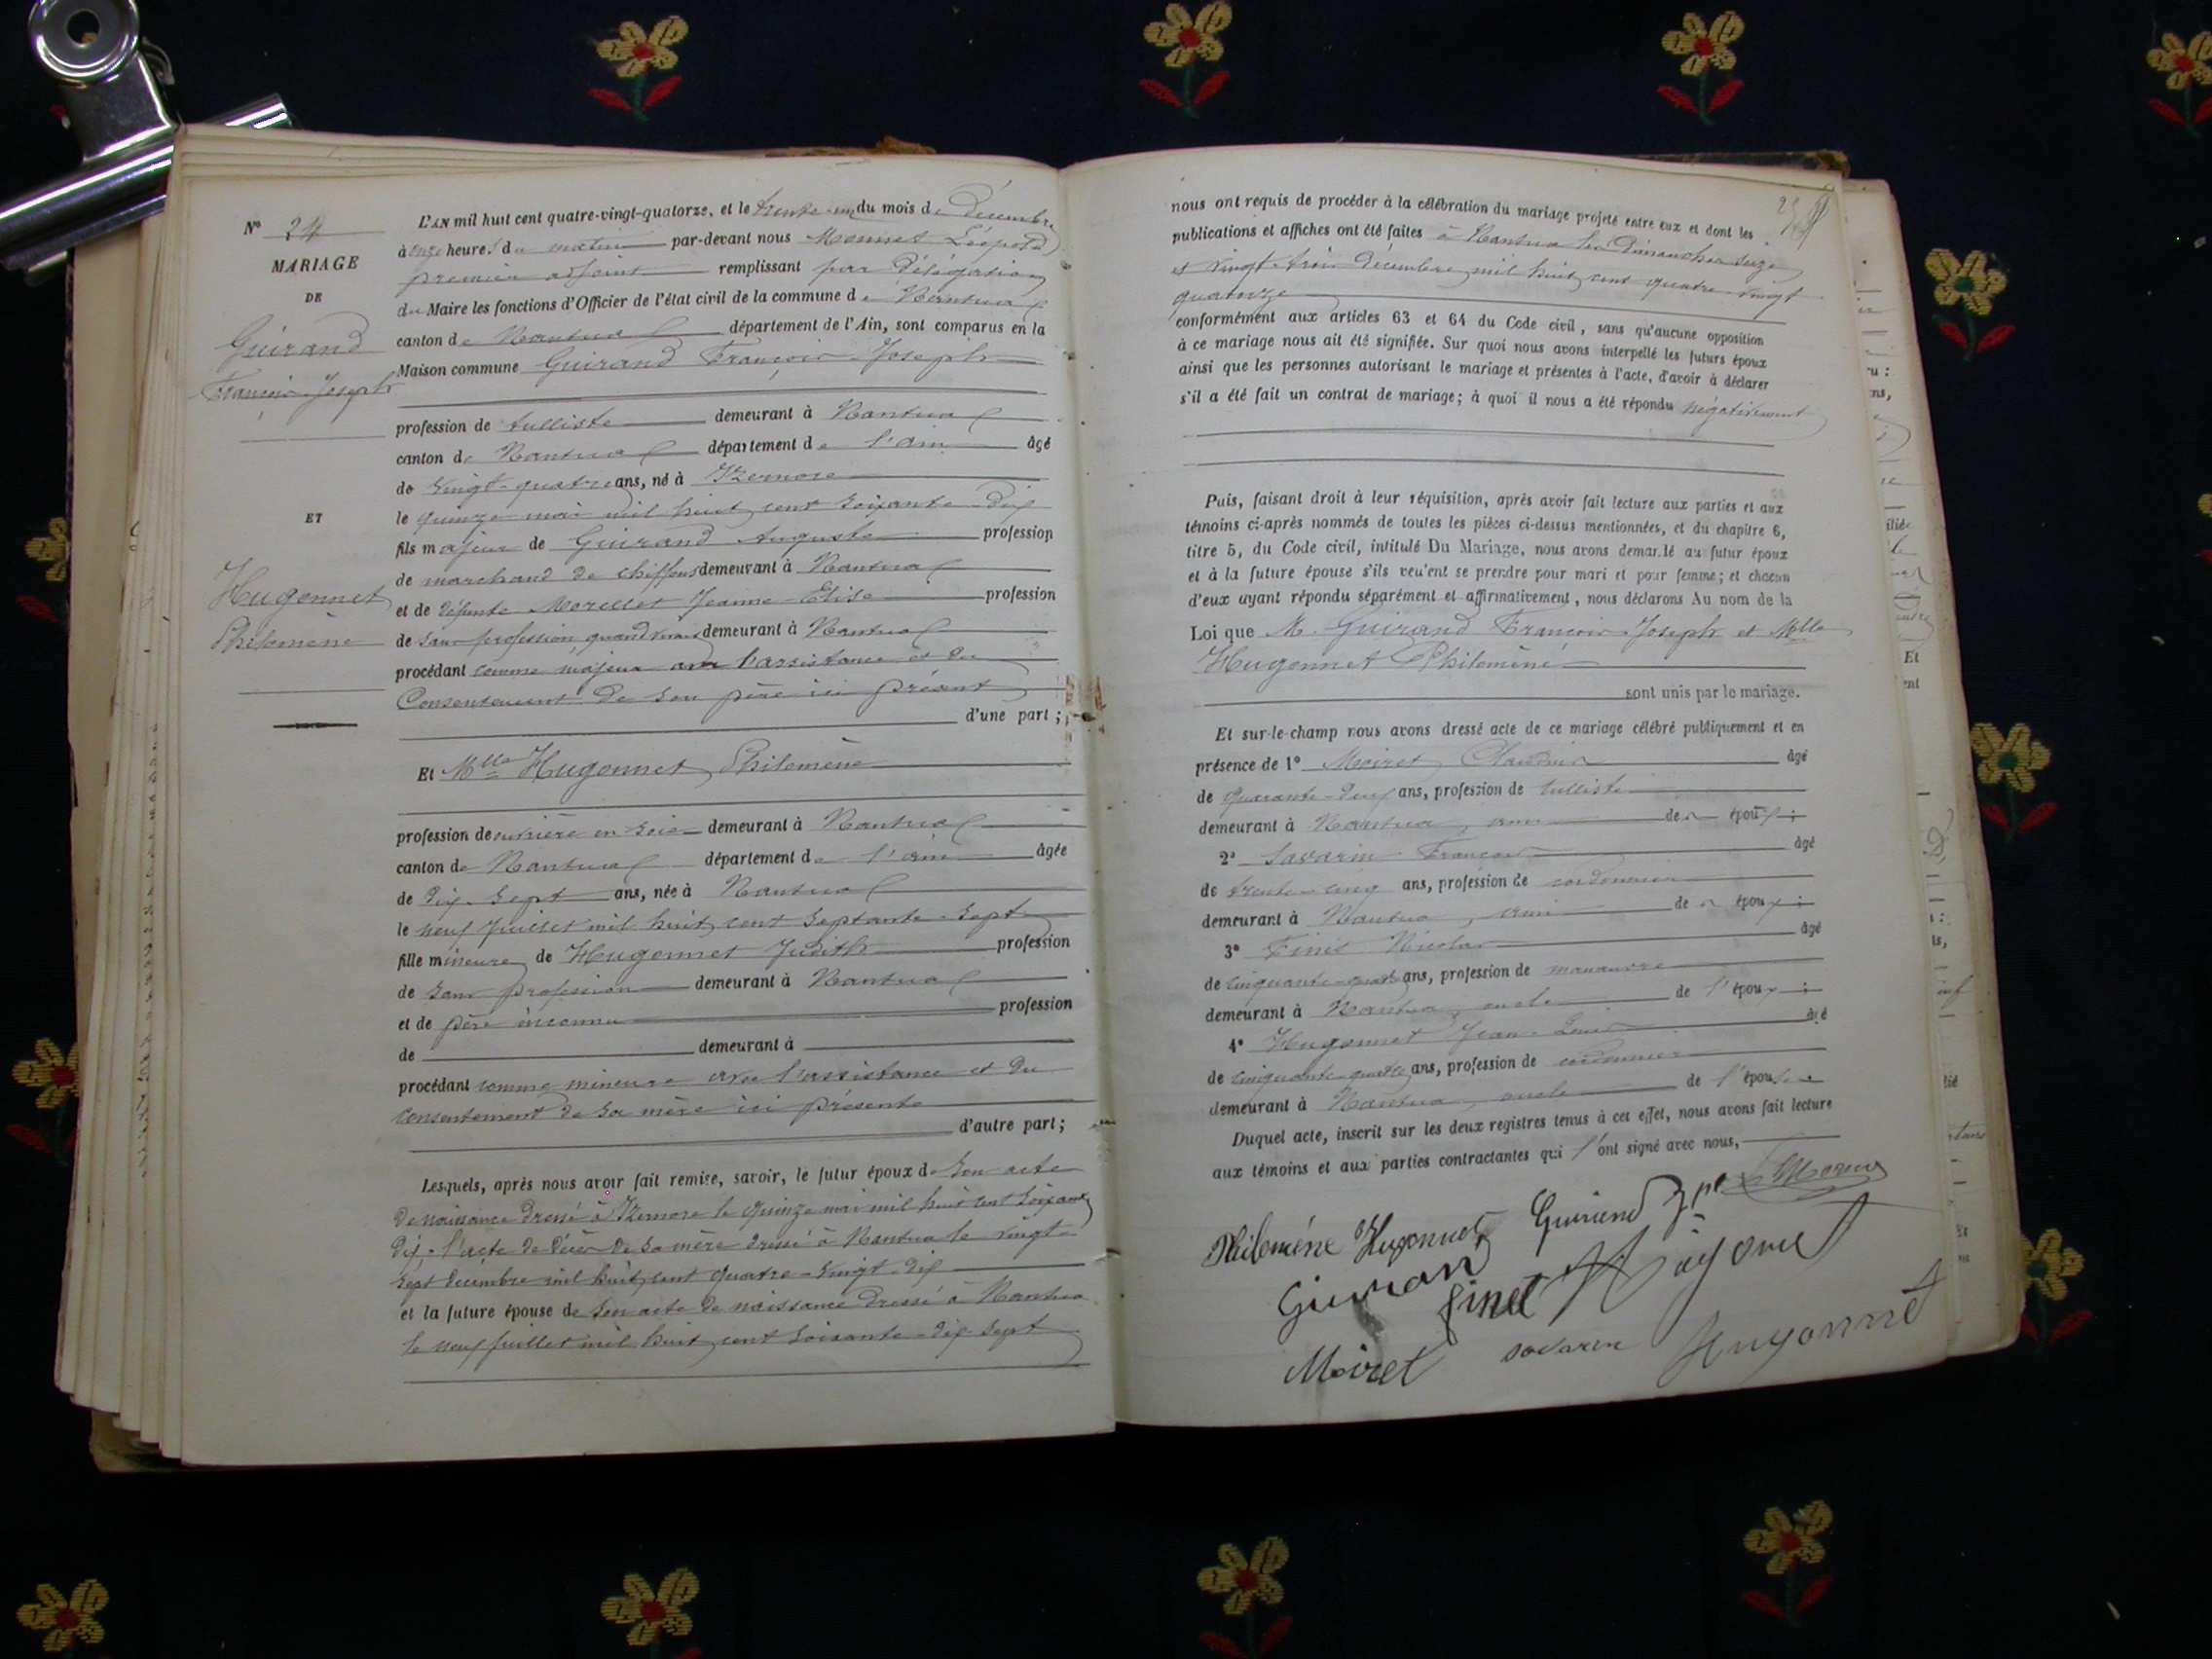 N° 24
MARIAGE
DE
Guirand
François-Joseph
ET
Hugonnet
Philomène
L'AN mil huit cent quatre-vingt-quatorze, et le trente-un du mois de Décembre
à onze heures du matin par-devant nous Monnet Léopold
premier adjoint remplissant par délégation
du Maire les fonctions d'Officier de l'état civil de la commune de Nantua
canton de Nantua département de l'Ain, sont comparus en la
Maison commune Guirand François-Joseph
profession de tulliste demeurant à Nantua
canton de Nantua département de l'ain âgé
de vingt-quatre ans, né à Izernore
le quinze mai mil huit cent soixante-dix
fils majeur de Guirand Auguste profession
de marchand de chiffons demeurant à Nantua
et de défunte Morellet Jeanne-Elise profession
de sans profession, quand vivait demeurant à Nantua
procédant comme majeur avec l'assistance et du
Consentement de son père ici présent
d'une part ;
Et Mlle Hugonnet Philomène
profession de ouvrière en soie demeurant à Nantua
canton de Nantua département de l'ain âgée
de dix-sept ans, née à Nantua
le neuf juillet mil huit cent septante-sept
fille mineure de Hugonnet Judith profession
de sans profession demeurant à Nantua
et de père inconnu profession
de demeurant à
procédant comme mineure avec l'assistance et du
consentement de sa mère ici présente
d'autre part ;
Lesquels, après nous avoir fait remise, savoir, le futur époux de son acte
de naissance dressé à Izernore le quinze mai mil huit cent soixante
dix, l'acte de décès de sa mère dressé à Nantua le vingt-
sept décembre mil huit cent quatre-vingt-dix
et la future épouse de son acte de naissance dressé à Nantua
le neuf juillet mil huit cent soixante-dix-sept
nous ont requis de procéder à la célébration du mariage projeté entre eux et dont les
publications et affiches ont été faites à Nantua les Dimanches seize
et vingt-trois décembre mil huit cent quatre-vingt
quatorze
conformément aux articles 63 et 64 du Code civil, sans qu'aucune opposition
à ce mariage nous ait été signifiée. Sur quoi nous avons interpellé les futurs époux
ainsi que les personnes autorisant le mariage et présentes à l'acte, d'avoir à déclarer
s'il a été fait un contrat de mariage; à quoi il nous a été répondu négativement
Puis, faisant droit à leur réquisition, après avoir fait lecture aux parties et aux
témoins ci-après nommés de toutes les pièces ci-dessus mentionnées, et du chapitre 6,
titre 5, du Code civil, intitulé Du Mariage, nous avons demandé au futur époux
et à la future épouse s'ils veulent se prendre pour mari et pour femme; et chacun
d'eux ayant répondu séparément et affirmativement, nous déclarons Au nom de la
Loi que M. Guirand François-Joseph et Mlle
Hugonnet Philomène
sont unis par le mariage.
Et sur-le-champ nous avons dressé acte de ce mariage célébré publiquement et en
présence de 1° Moiret Claudius âgé
de quarante-deux ans, profession de tulliste
demeurant à Nantua, ami des époux ;
2° Savarin François âgé
de trente-cinq ans, profession de cordonnier
demeurant à Nantua, ami des époux ;
3° Finet Nicolas âgé
de cinquante-quatre ans, profession de manoeuvre
demeurant à Nantua, oncle de l'époux ;
4° Hugonnet Jean-Louis âgé
de cinquante-quatre ans, profession de cordonnier
demeurant à Nantua, oncle de l'épouse
Duquel acte, inscrit sur les deux registres tenus à cet effet, nous avons fait lecture
aux témoins et aux parties contractantes qui l'ont signé avec nous,
Philoméne Hugonnet Guirand
Guirand finet
Moiret savarin Hugonnet